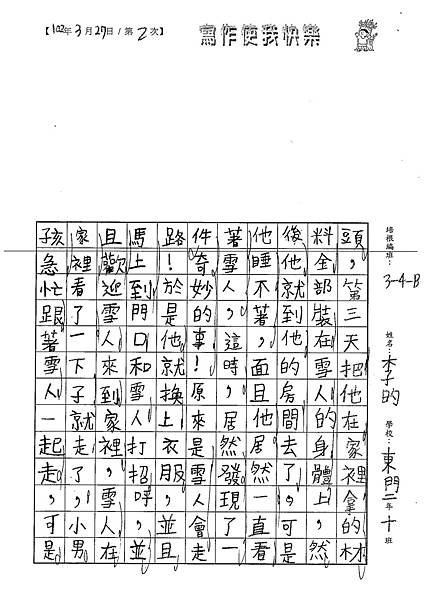 【102年3月27日/第2次】
寫作使我快樂
培根編班：3-4-B 姓名：李昀 學校：東門二年十班
頭，第三天把他在家裡拿的材
料全部裝在雪人的身體上，然
後他就到他的房間去了，可是
他睡不著，而且他居然一直看
著雪人，這時，居然發現了一
件奇妙的事！原來是雪人會走
路！於是他就換上衣服，並且
馬上到門口和雪人打招呼，並
且歡迎雪人來到家裡，雪人在
家裡看了一下子就走了，小男
孩急忙跟著雪人一起走，可是